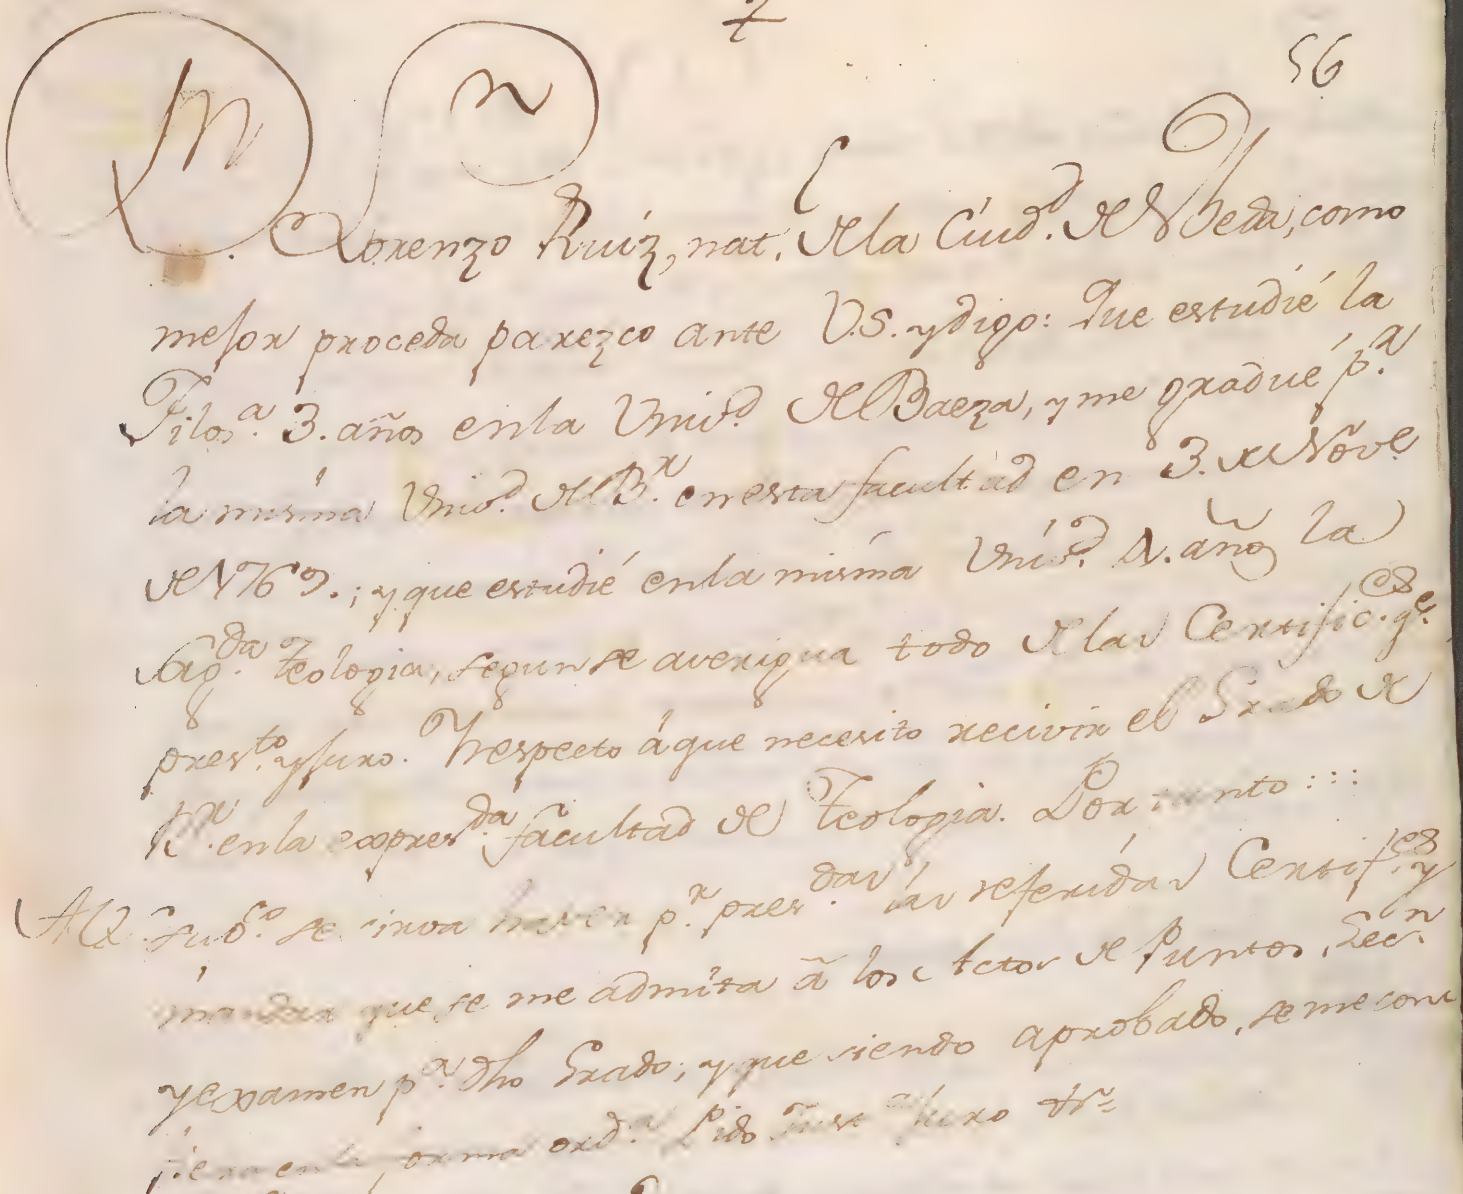 56
M. S.
Lorenzo Ruiz, nat. de la Ciud.d de Vbeda, como
mejor proceda parezco ante V.S. y digo: Que estudié la
Filos.a 3. años en la Univ.d de Baeza, y me gradué p.a
la misma Univ.d de B.r en esta facultad en 3. de Nov.e
de 1769.; y que estudié en la misma Univ.d 4. años la
Sag.da Teologia, segun se averigua todo de las Certific.es q.e
pres.to y juro. Y respecto á que necesito recivir el Grado de
B.r en la expres.da facultad de Teologia. Por tanto :::
A V.S. sup.co se sirva haver p.r pres.das las referidas Certif.es y
mandar que se me admita â los Actos de Puntos, Lec.n
y examen p.a dho Grado; y que siendo aprobado, se me con
fiera en la forma ord.a Pido Just. Juro &.a